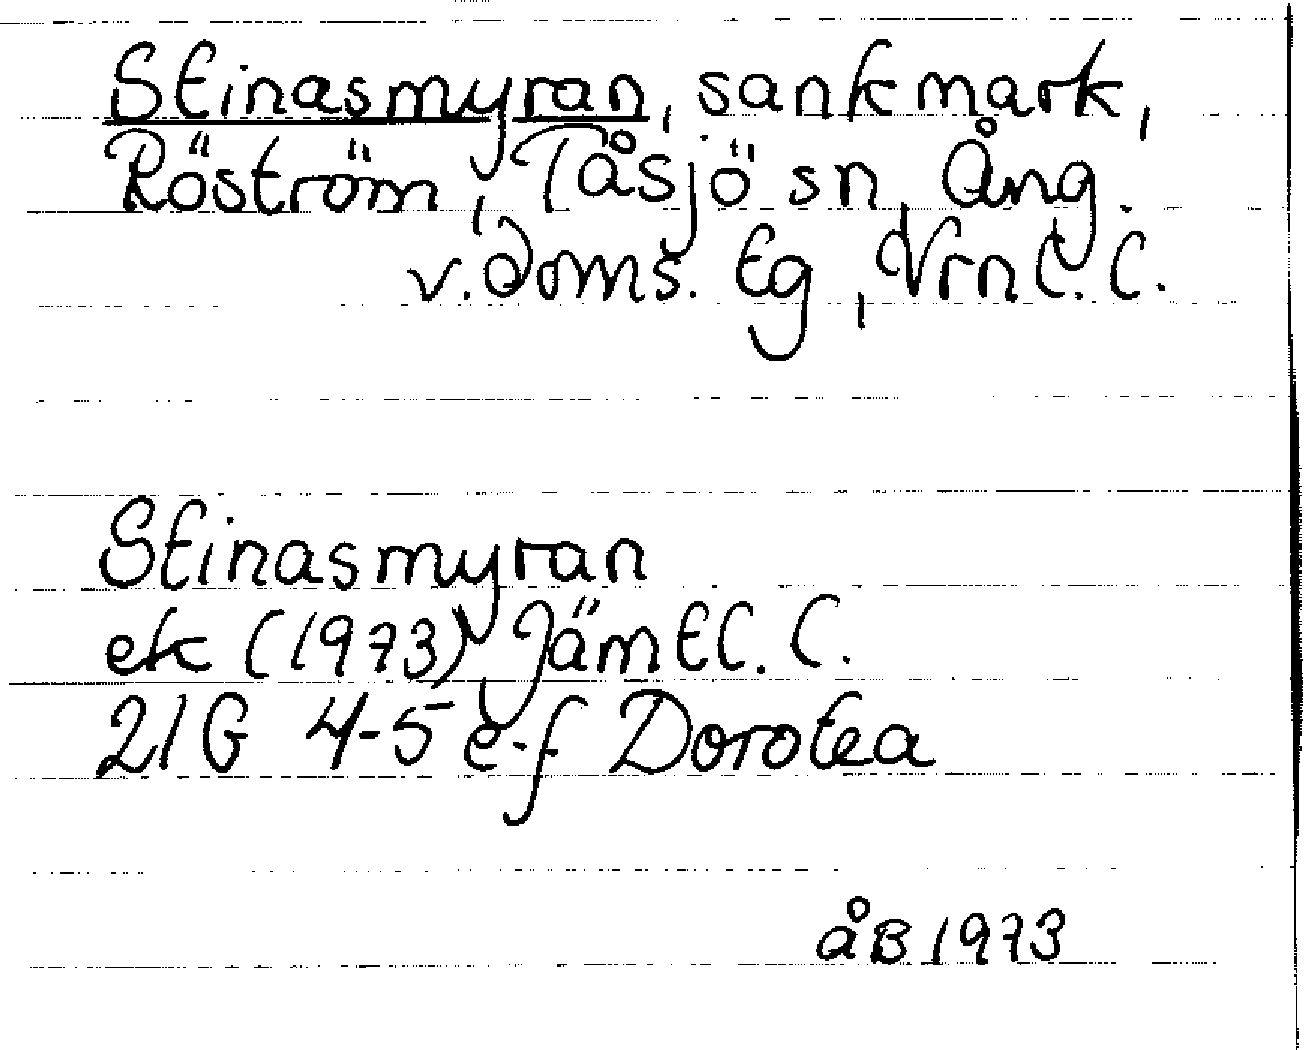 Stinasmyran, sankmark,
Röström, Tåsjö sn, Ång.
v. doms. Eg, Vrnl. l.
Stinasmyran
ek (1973) Jämtl. l.
21G 4-5 e-f Dorotea
åB 1973